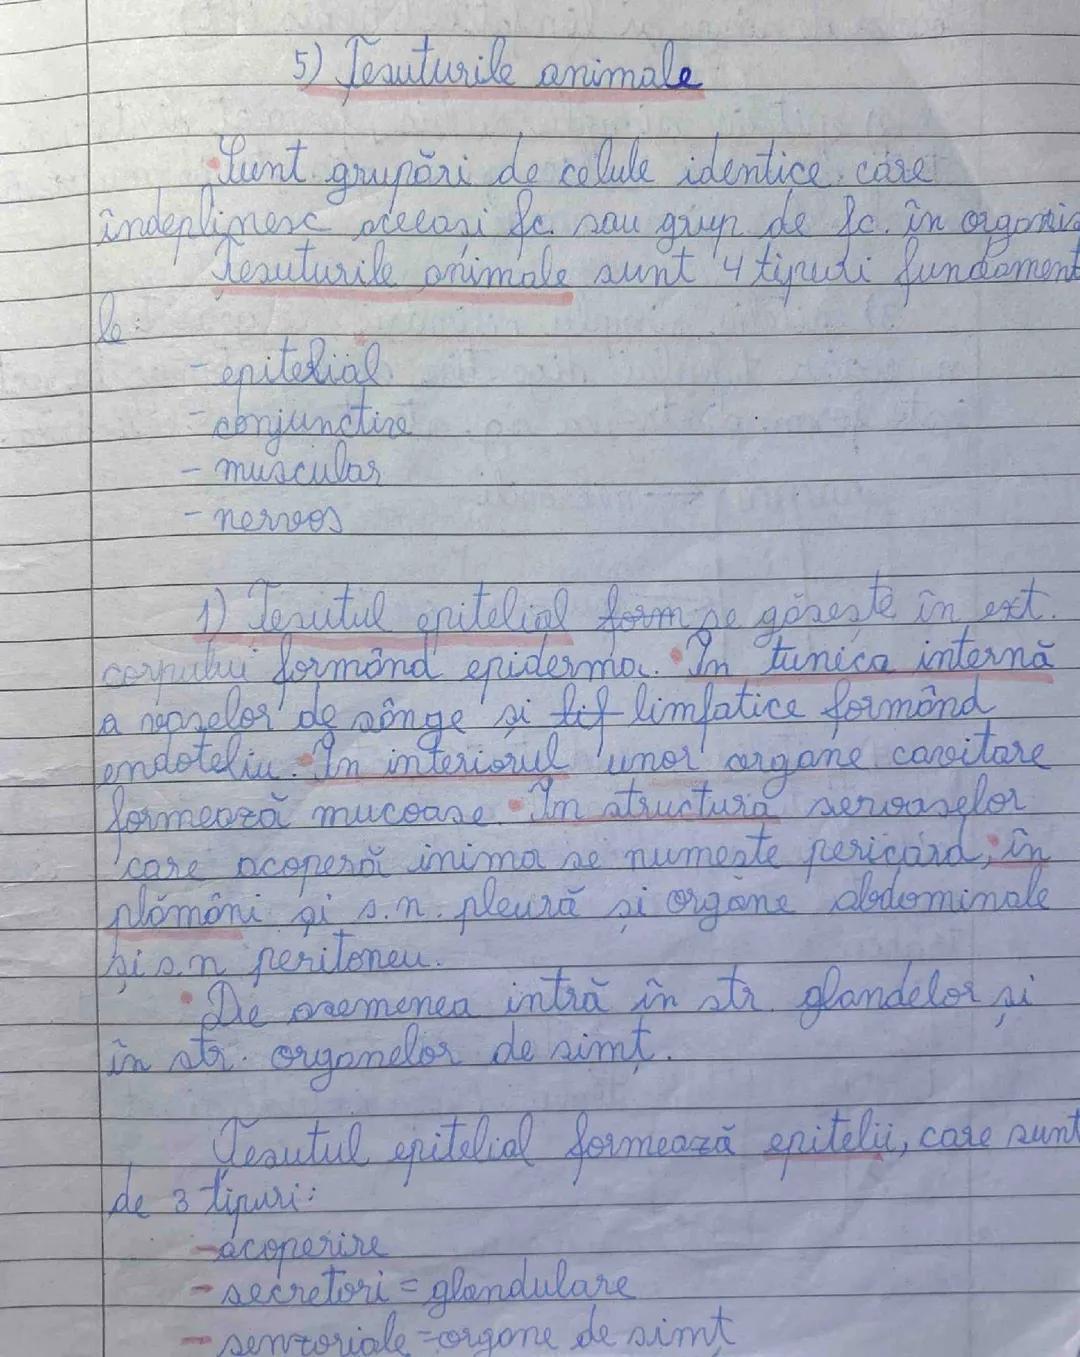 5) Tesuturile animale
Sunt grupări de celule identice care
îndeplinesc aceeasi fc. sau grup de fc. în organis
Tesuturile animale sunt 4 tipuri fundament
le:
- epitelial
- conjunctive
- muscular
- nervos
1) Tesutul epitelial form se găseste în ext.
corpului formând epiderma. În tunica internă
a vaselor de sânge si limfatice formând
endoteliu. În interiorul unor organe cavitare
formează mucoase. În structura seroaselor
care acoperă inima se numeste pericard, în
plămâni și s.n. pleură si organe abdominale
și s.n peritoneu.
De asemenea intră în str. glandelor și
în str. organelor de simț.
Tesutul epitelial formează epitelii, care sunt
de 3 tipuri:
- acoperire
- secretori = glandulare
- senzoriale = organe de simț